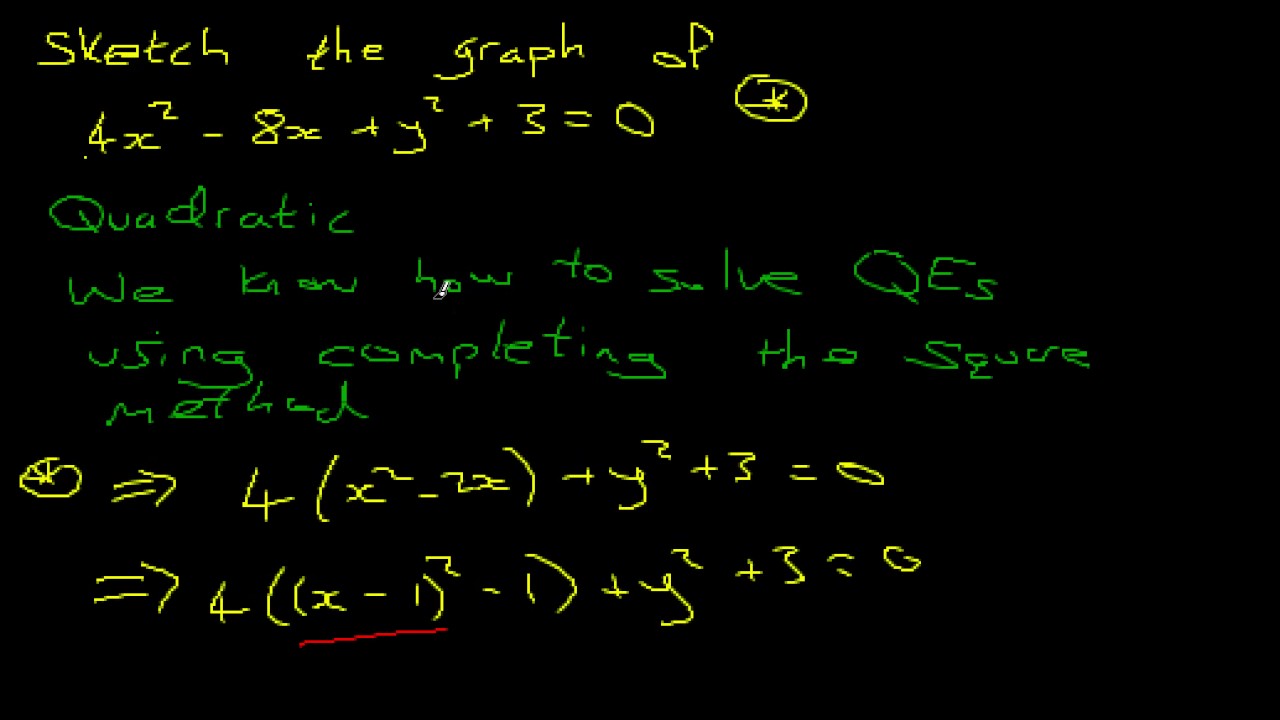 Sketch the graph of
4x² - 8x + y² + 3 = 0 ⊛
Quadratic
We know how to solve QEs
using completing the square
method
⊛ ⇒ 4(x² - 2x) + y² + 3 = 0
⇒ 4((x - 1)² - 1) + y² + 3 = 0